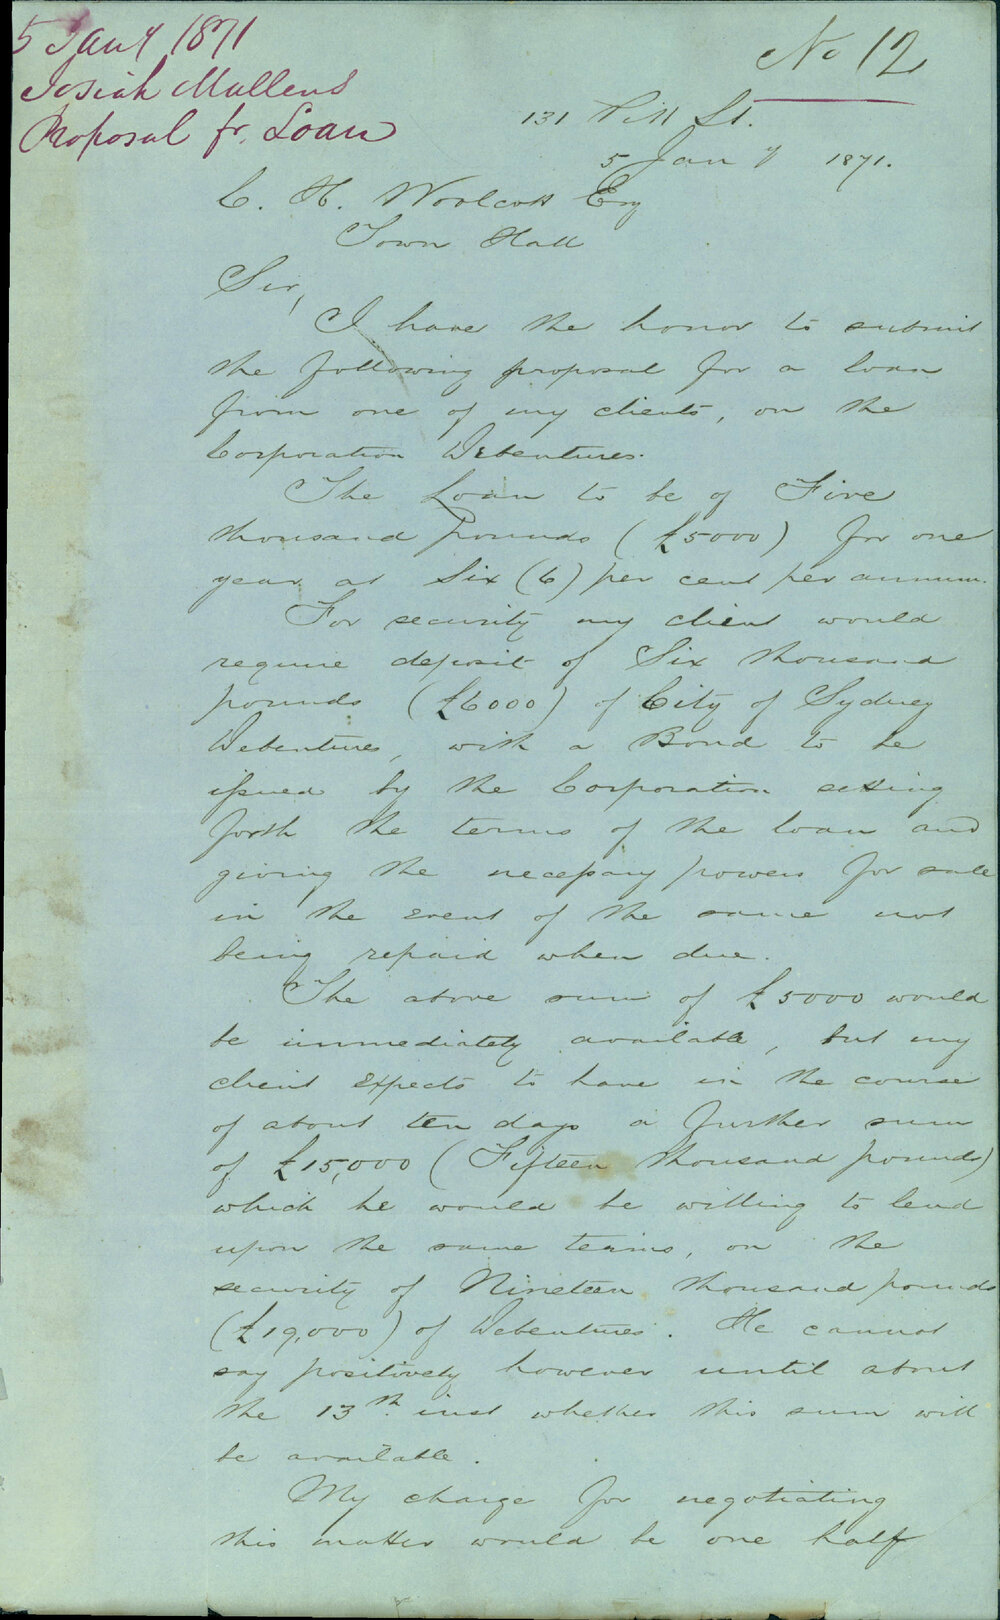 5 Jany 1871
Josiah Mullens
Proposal fr. Loan
No 12
131 Pitt St.
5 Jany 1871.
C. H. Woolcott Esq
Town Hall
Sir,
I have the honor to submit
the following proposal for a loan
from one of my clients, on the
Corporation Debentures.
The Loan to be of Five
thousand pounds (£5000) for one
year at Six (6) per cent per annum.
For security my client would
require deposit of Six thousand
pounds (£6000) of City of Sydney
Debentures, with a Bond to be
issued by the Corporation setting
forth the terms of the loan and
giving the necessary powers for sale
in the event of the same not
being repaid when due.
The above sum of £5000 would
be immediately available, but my
client expects to have in the course
of about ten days a further sum
of £15,000 (Fifteen thousand pounds)
which he would be willing to lend
upon the same terms, on the
security of Nineteen thousand pounds
(£19,000) of Debentures. He cannot
say positively however until about
the 13th inst whether this sum will
be available.
My charge for negotiating
this matter would be one half